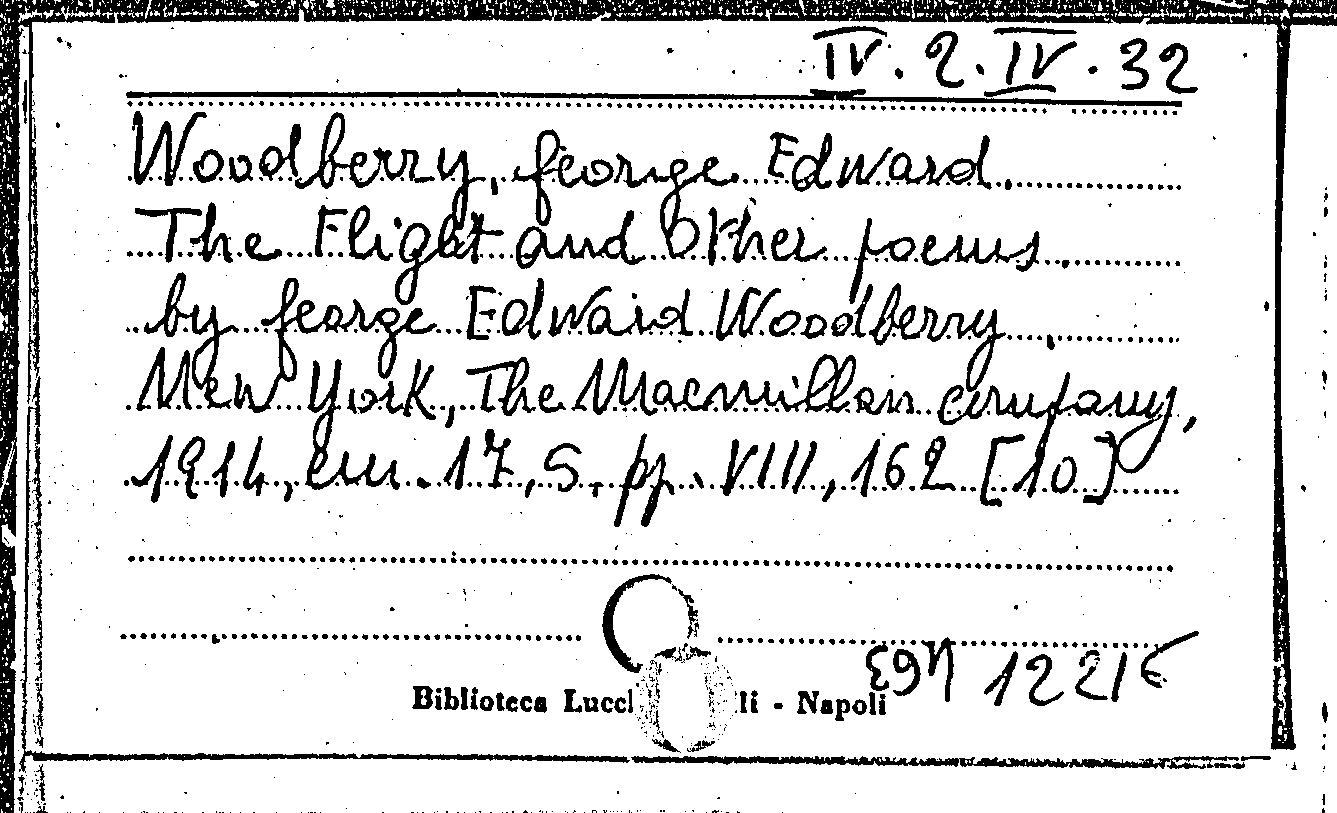 IV. 2. IV. 32
Woodberry, George Edward.
The Flight and Other poems.
by George Edward Woodberry
New York, The Macmillan company,
1914, cm. 17,5, pp. VIII, 162 [10]
Biblioteca Lucc li - Napoli